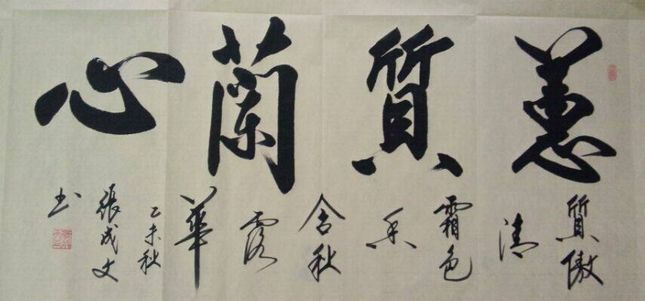 蕙質蘭心
質傲
清
霜色
香
含秋
露
華
乙未秋
張成文
书